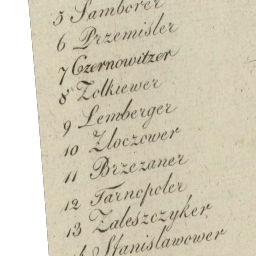 5 Samborer
6 Przemisler
7 Czernowitzer
8 Zolkiewer
9 Lemberger
10 Zloczower
11 Brzezaner
12 Tarnopoler
13 Zaleszczyker
Stanislawower